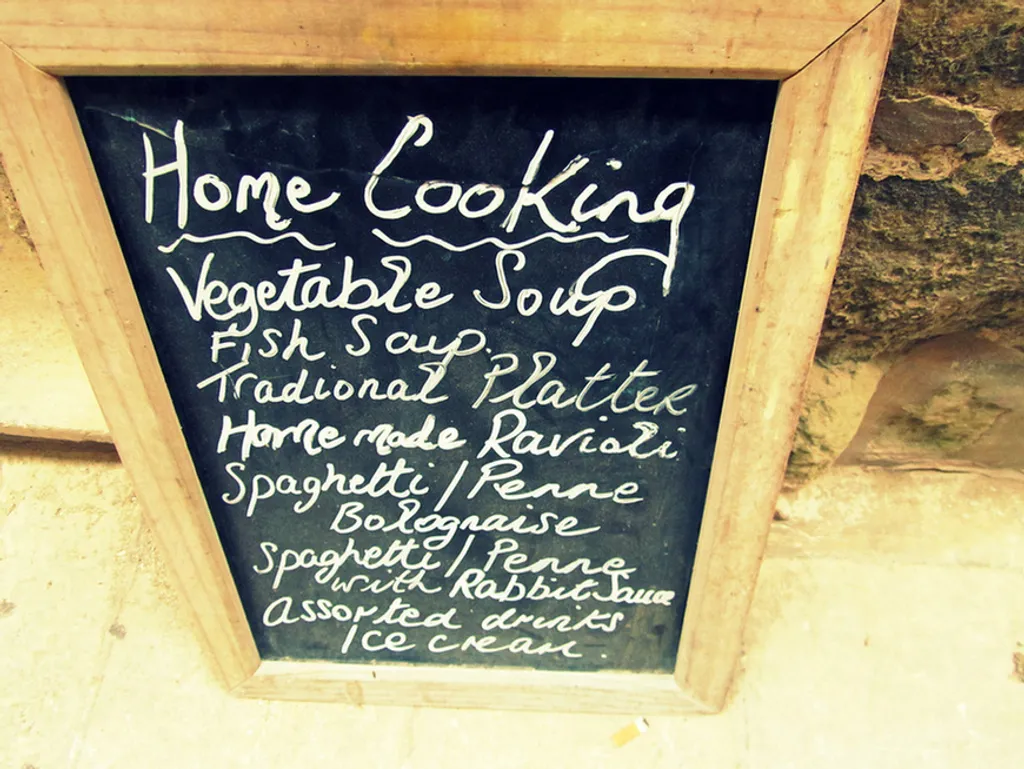 Home Cooking
Vegetable Soup
Fish Soup.
Tradional Platter
Home made Ravioli
Spaghetti / Penne
Bolognaise
Spaghetti / Penne
with Rabbit Sauce
Assorted drinks
Ice cream.